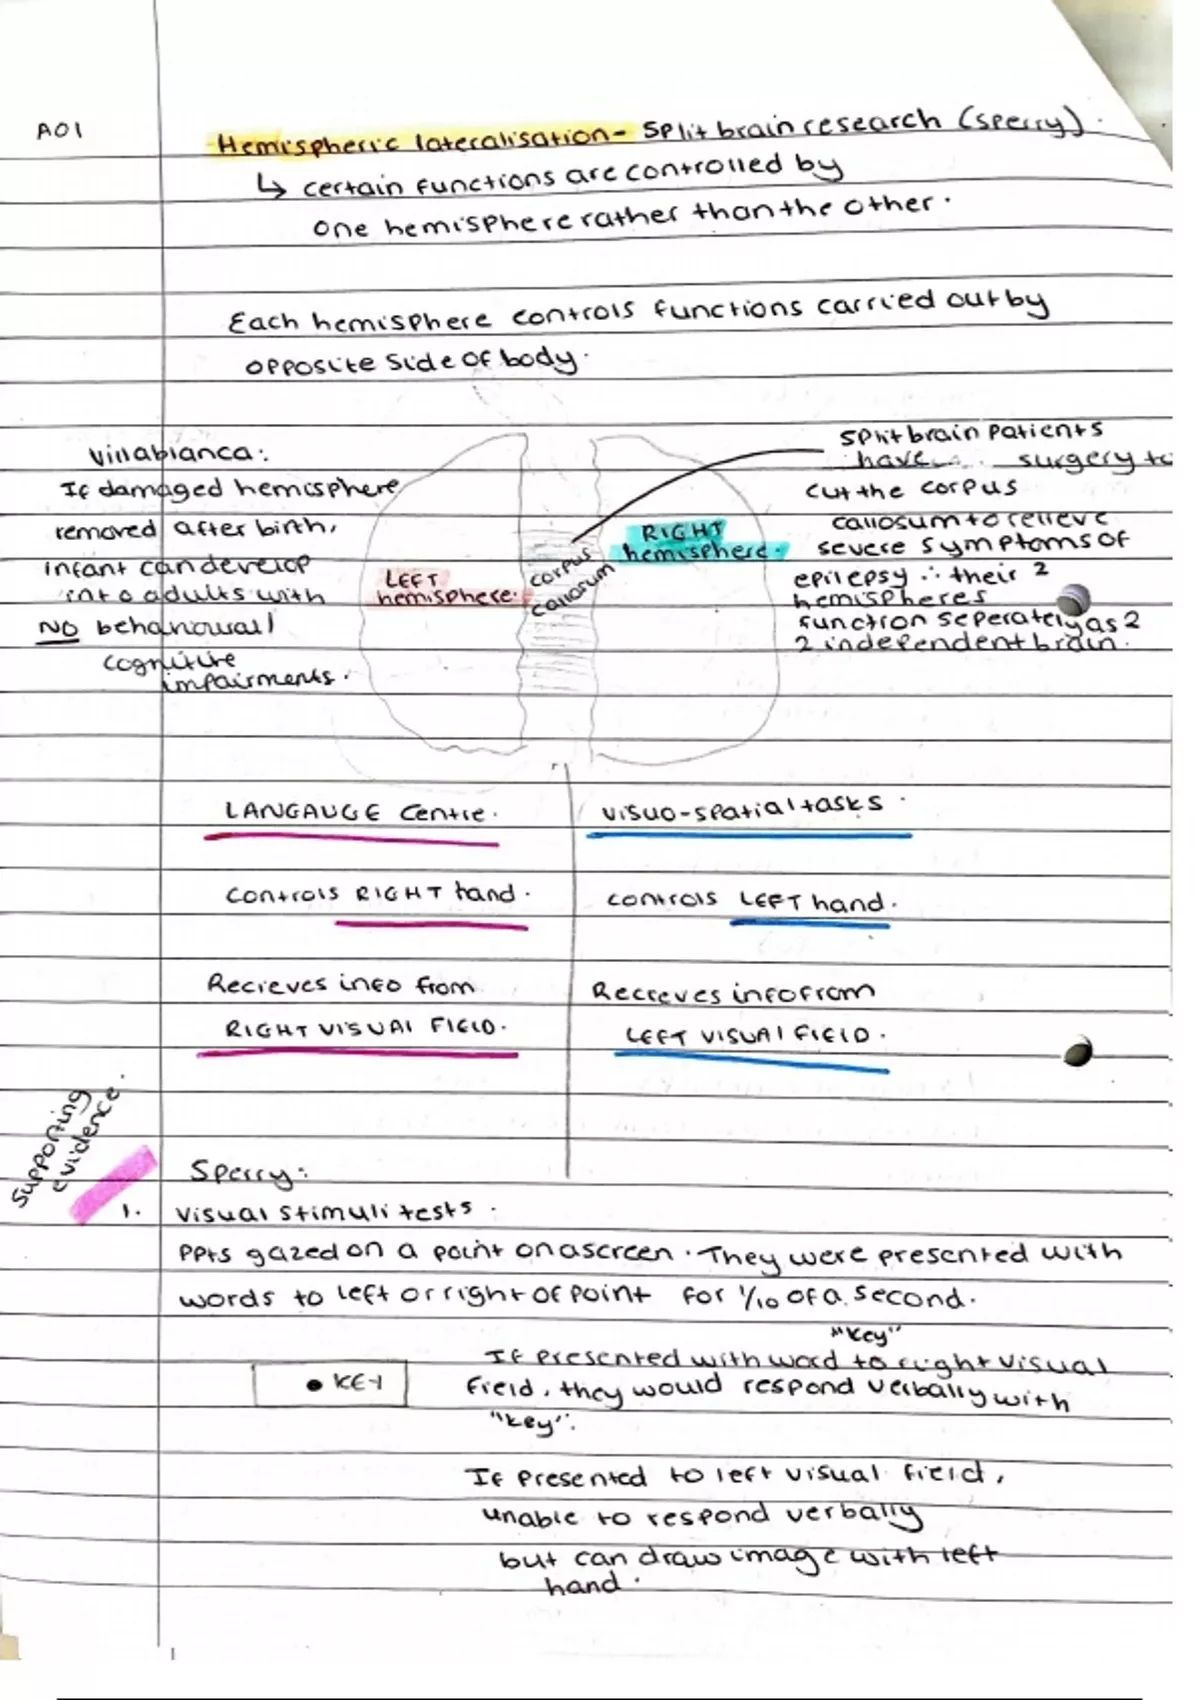 AO1
Hemispheric lateralisation- Split brain research (Sperry).
↳ certain functions are controlled by
one hemisphere rather than the other.
Each hemisphere controls functions carried out by
opposite side of body.
Villablanca:
If damaged hemisphere
removed after birth,
infant can develop
into adults with
NO behavioural/
cognitive
impairments.
LEFT
hemisphere.
corpus
callosum
RIGHT
hemisphere.
Split brain patients
have surgery to
cut the corpus
callosum to relieve
severe symptoms of
epilepsy ∴ their 2
hemispheres
function seperately as 2
2 independent brain.
LANGAUGE Centre.
Controls RIGHT hand.
Recieves info from
RIGHT VISUAL FIELD.
Visuo-spatial tasks.
controls LEFT hand.
Recieves info from
LEFT VISUAL FIELD.
Supporting
evidence.
Sperry:
1. Visual stimuli tests.
PPts gazed on a point on a screen. They were presented with
words to left or right of point for 1/10 of a second.
• KEY
"Key"
If presented with word to right visual
field, they would respond verbally with
"key".
If presented to left visual field,
unable to respond verbally
but can draw image with left
hand.